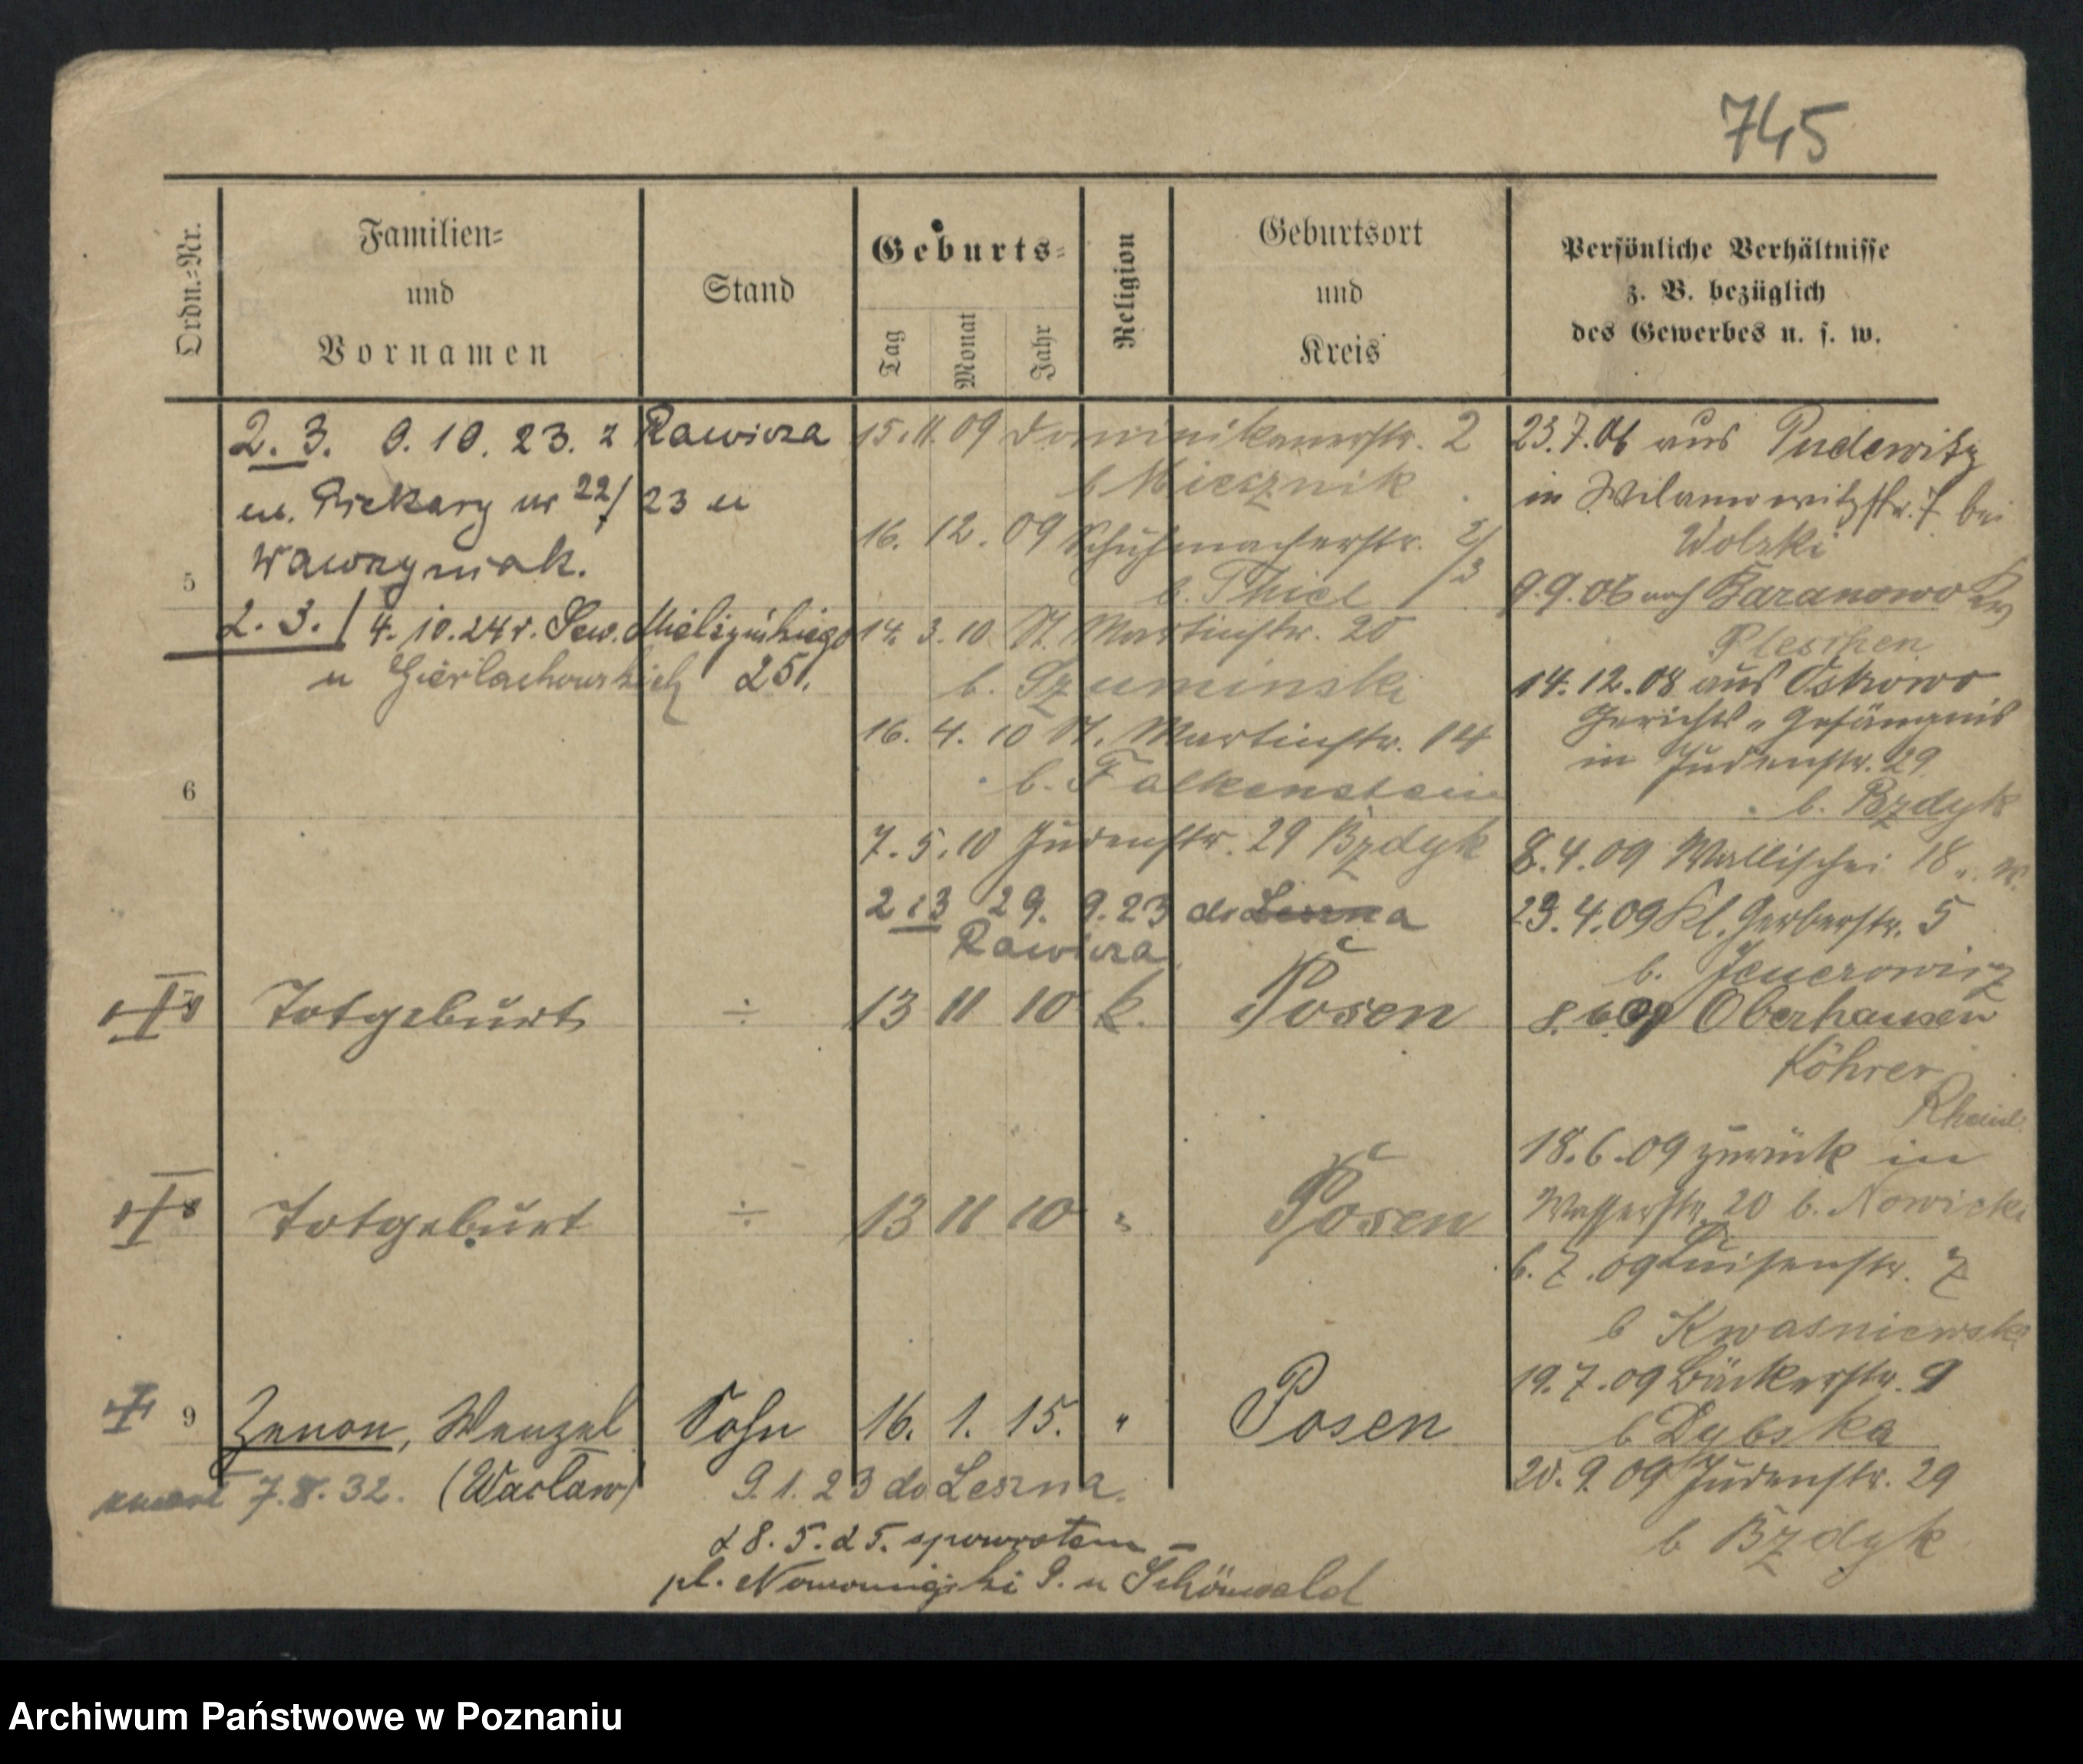 745
Ordn.=Nr.
Familien=
und
Vornamen
Stand
Geburts=
Tag
Monat
Jahr
Religion
Geburtsort
und
Kreis
Persönliche Verhältnisse
z. B. bezüglich
des Gewerbes u. s. w.
2. 3. 9. 10. 23. z Rawicza
ul. Piekary nr 22/23 u
Wawrzyniak.
5
2. 3. / 4. 10. 24 r. Sew. Mielżyńskiego
u Gierlachowskich 25.
6
15. 11. 09 Dominikanerstr. 2
b Miesznik
16. 12. 09 Schuhmacherstr. 2/3
b. Thiel
14. 3. 10 St. Martinstr. 20
b. Szuminski
16. 4. 10 St. Martinstr. 14
b. Falkenstein
7. 5. 10 Judenstr. 29 Bzdyk
2 i 3 29. 9. 23 do Leszna
Rawicza
23. 7. 06 aus Pudewitz
in Wilamowitzstr. 7 bei
Wolski
9. 9. 06 nach Baranowo
Pleschen
14. 12. 08 aus Ostrowo
Gerichts-Gefängnis
in Judenstr. 29
b. Bzdyk
8. 4. 09 Wallischei 18
23. 4. 09 Kl. Gerberstr. 5
b.
8. 6. 09 Oberhausen
Köhrer
Rheinl.
18. 6. 09 zurück in
Wasserstr. 20 b. Nowicki
6. 7. 09 Luisenstr. 7
b Kwasniewski
19. 7. 09 Bäckerstr. 9
b Dybska
20. 9. 09 Judenstr. 29
b Bzdyk
Totgeburt ÷ 13 11 10 k. Posen
Totgeburt ÷ 13 11 10 " Posen
9 Zenon, Wenzel Sohn 16. 1. 15. " Posen
zmarł 7. 8. 32. (Wacław)
9. 1. 23 do Leszna.
28. 5. 25. spowrotem –
pl. Nowomiejski 9. u Schönwald
Archiwum Państwowe w Poznaniu